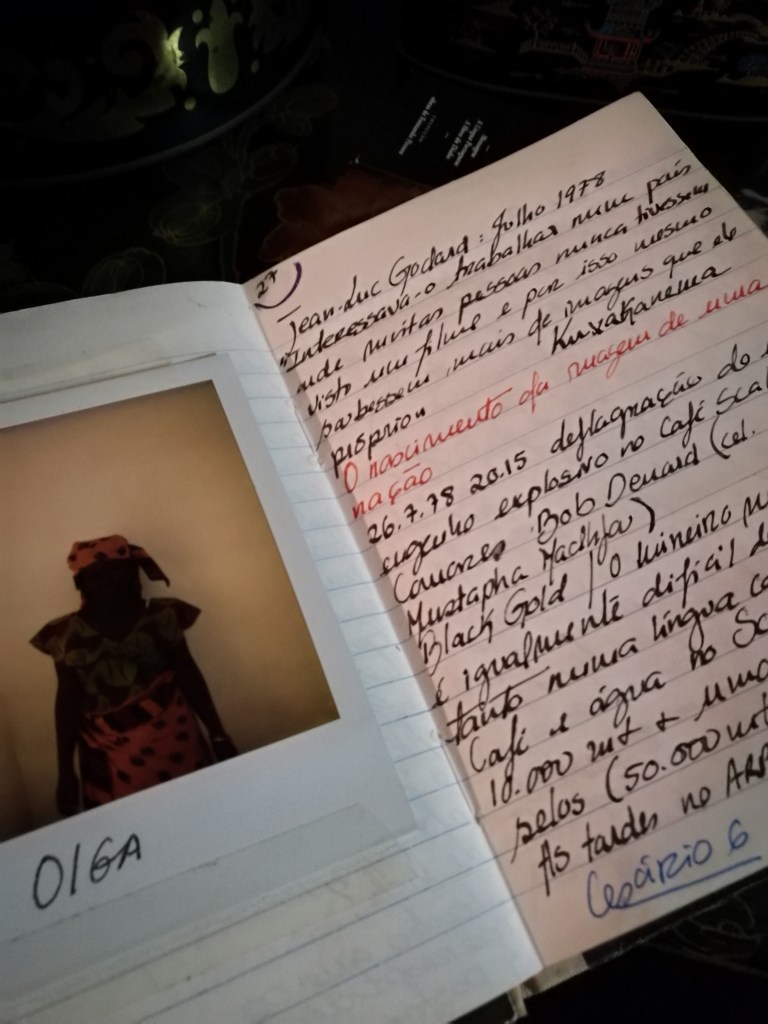 OLGA
27
Jean-Luc Godard: Julho 1978
"Interessava-o trabalhar num país
onde muitas pessoas nunca tivessem
visto um filme e por isso mesmo
soubessem mais de imagens que ele
próprio"
Kuxakanema
O nascimento da imagem de uma
nação
26.7.78 20.15 deflagração de
engenho explosivo no Café Scal
Comores Bob Denard (cel.
Mustapha
Black Gold | O Mineiro
é igualmente difícil
tanto numa língua
Café e água no
10.000 mt +
selos (50.000
As tardes no
Cesário 6